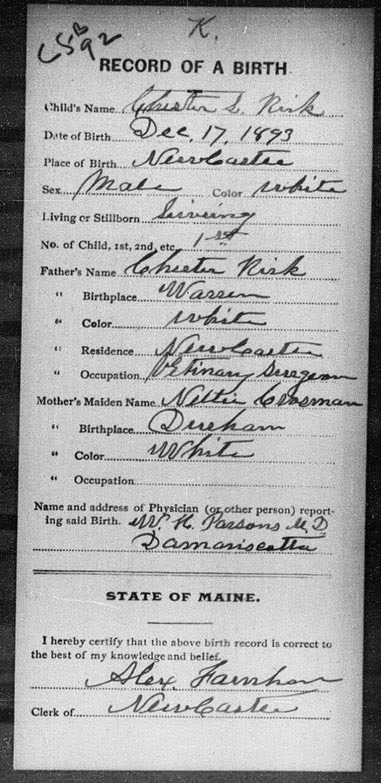 K.
RECORD OF A BIRTH
Child's Name Chester L. Kirk
Date of Birth Dec. 17, 1893
Place of Birth Newcastle
Sex Male Color White
Living or Stillborn Living
No. of Child, 1st, 2nd, etc. 1st
Father's Name Chester Kirk
" Birthplace Warren
" Color White
" Residence Newcastle
" Occupation Vetinary Surgeon
Mother's Maiden Name Nettie Crosman
" Birthplace Durham
" Color White
" Occupation
Name and address of Physician (or other person) report-
ing said Birth. W. H. Parsons M.D.
Damariscotta
STATE OF MAINE.
I hereby certify that the above birth record is correct to
the best of my knowledge and belief.
Alex Farnham
Clerk of Newcastle